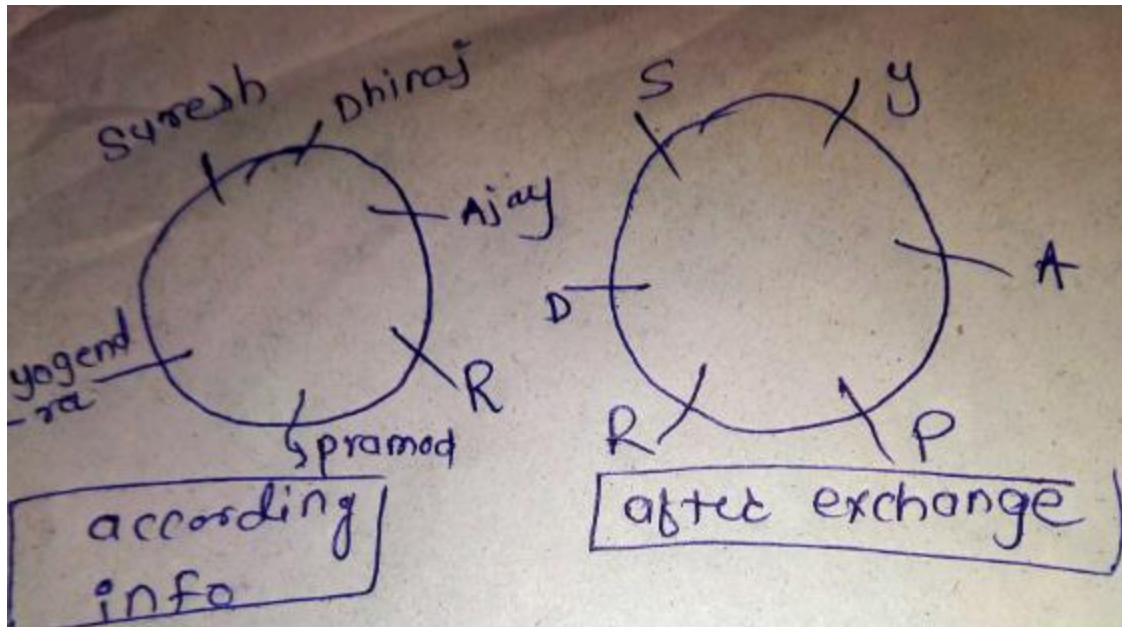 Suresh
Dhiraj
Ajay
R
pramod
yogend
-ra
according
info
S
y
A
P
R
D
after exchange